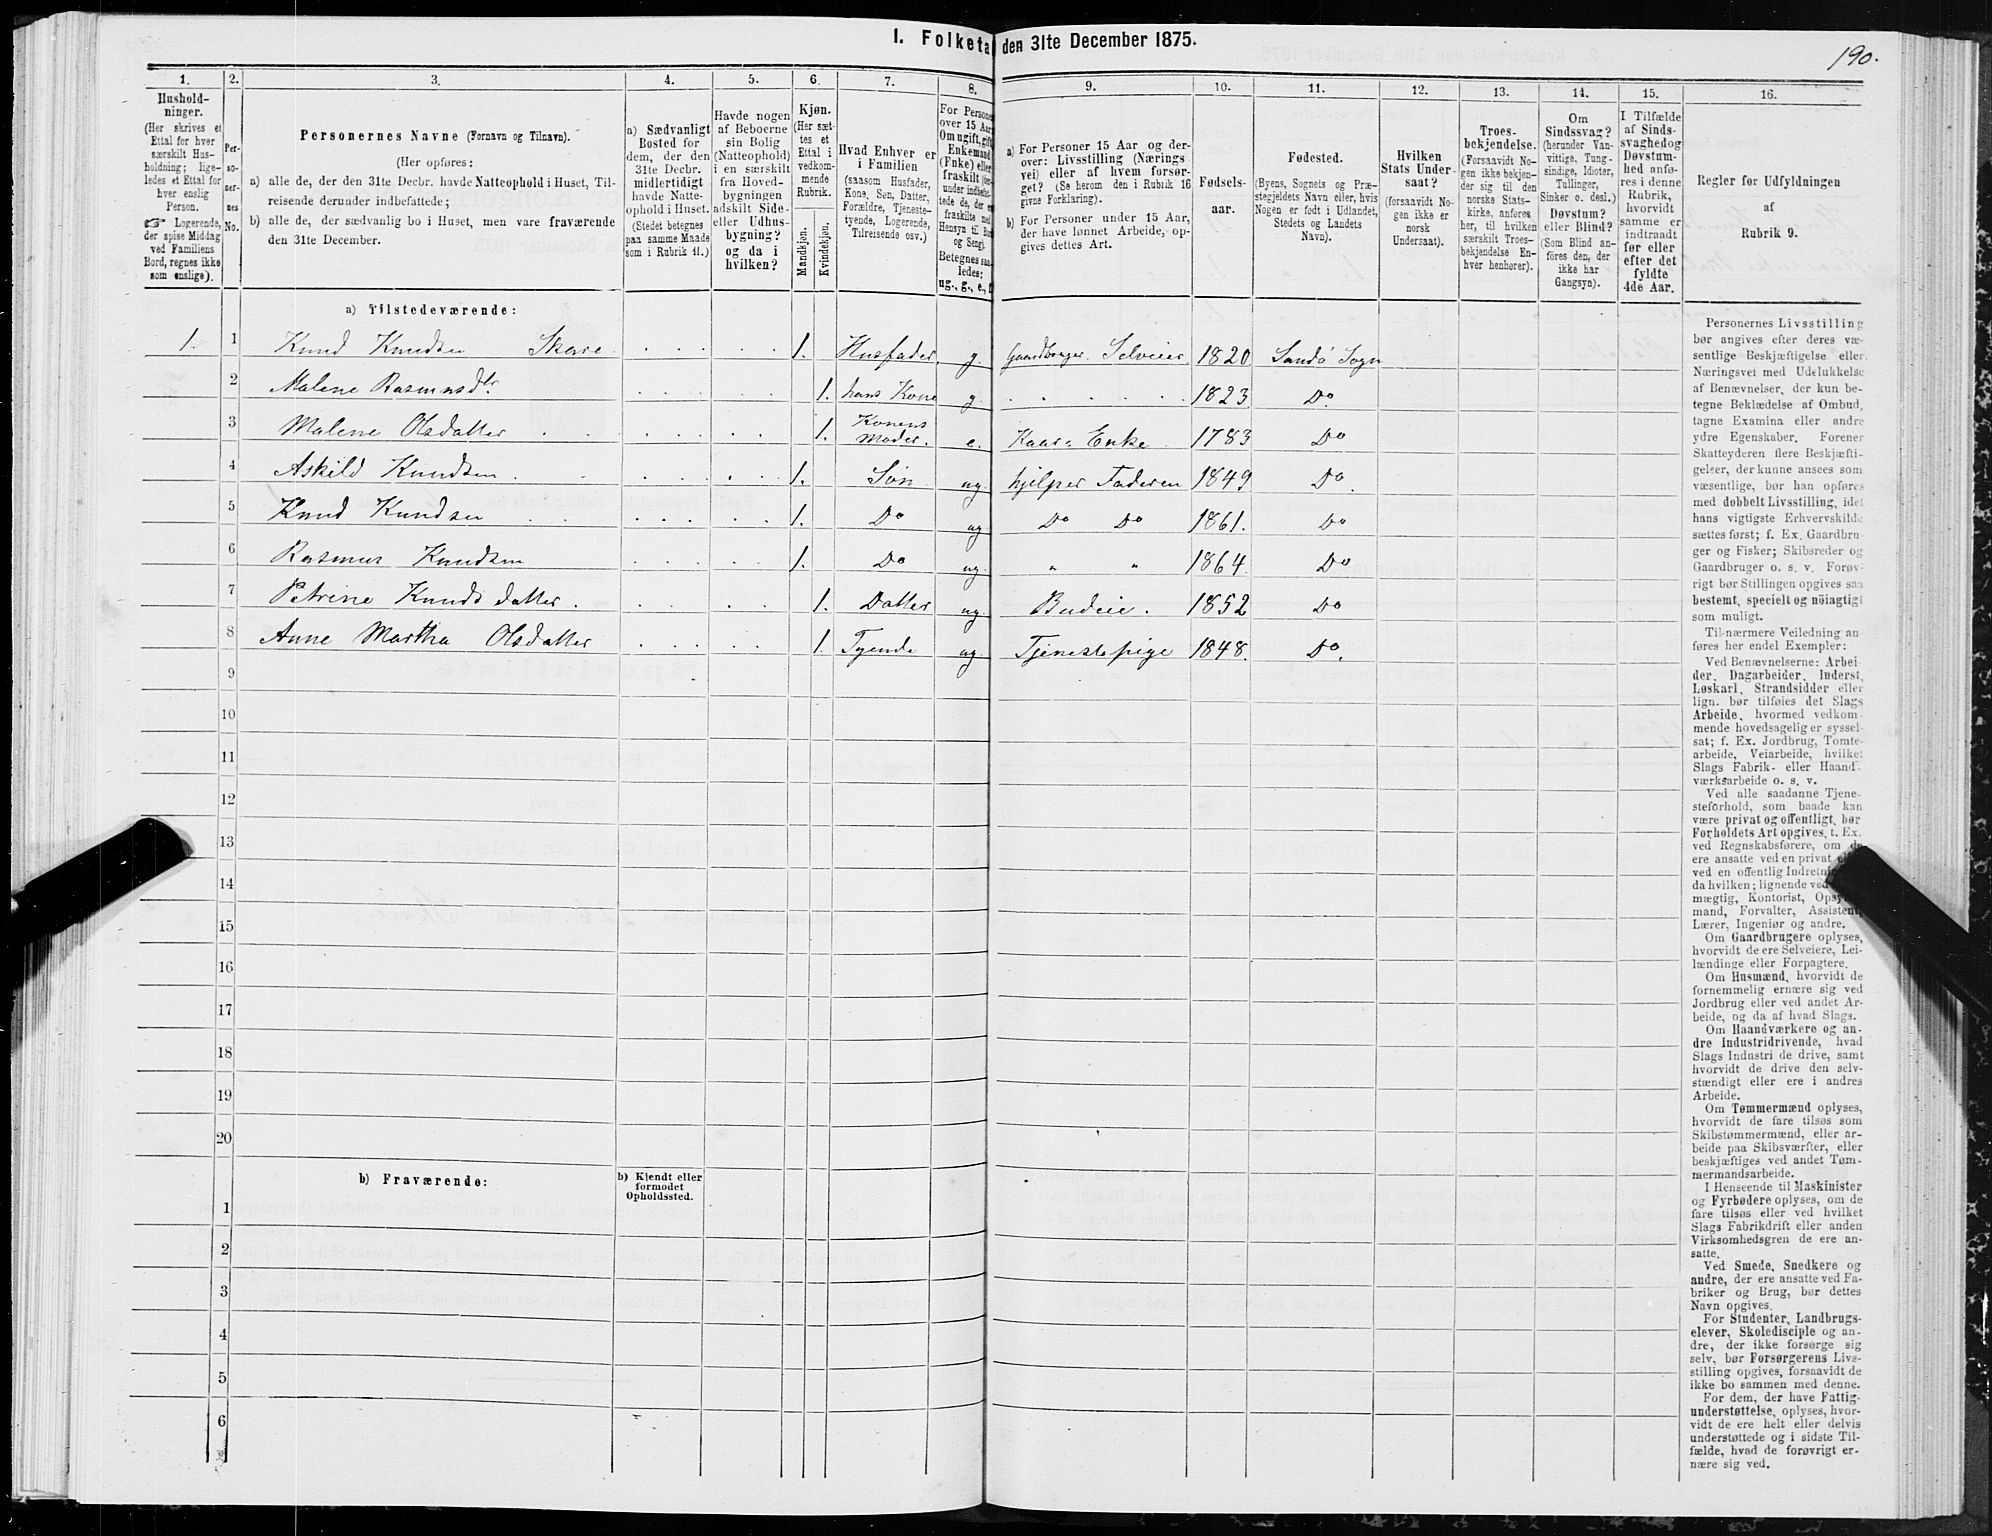 I. Folketa den 31te December 1875.
190.
1. 2. 3. 4. 5. 6. 7. 8. 9. 10. 11. 12. 13. 14. 15. 16.
Hushold-
ninger.
(Her skrives et
Ettal for hver
særskilt Hus-
holdning; lige-
ledes et Ettal for
hver enslig
Person.
☞ Logerende,
der spise Middag
ved Familiens
Bord, regnes ikke
som enslige).
Per-
so-
ner-
nes
No.
Personernes Navne (Fornavn og Tilnavn).
(Her opføres:
a) alle de, der den 31te Decbr. havde Natteophold i Huset, Til-
reisende derunder indbefattede;
b) alle de, der sædvanlig bo i Huset, men vare fraværende
den 31te December.
a) Sædvanligt
Bosted for
dem, der den
31te Decbr.
midlertidigt
havde Natte-
ophold i Huset.
(Stedet betegnes
paa samme Maade
som i Rubrik 11.)
Havde nogen
af Beboerne
sin Bolig
(Natteophold)
i en særskilt
fra Hoved-
bygningen
adskilt Side-
eller Udhus-
bygning?
og da i
hvilken?
Kjøn.
(Her sæt-
tes et
Ettal i
vedkom-
mende
Rubrik.
Mandkjøn.
Kvindekjøn.
Hvad Enhver er
i Familien
(saasom Husfader,
Kone, Søn, Datter,
Forældre, Tjeneste-
tyende, Logerende,
Tilreisende osv.)
For Persone
over 15 Aar
Om ugift, gift
Enkemand
(Enke) eller
fraskilt
a) For Personer 15 Aar og der-
over: Livsstilling (Nærings
vei) eller af hvem forsør-
get? (Se herom den i Rubrik 16
givne Forklaring).
b) For Personer under 15 Aar,
der have lønnet Arbeide, op-
gives dettes Art.
Fødsels-
aar.
Fødested.
(Byens, Sognets og Præ-
stegjeldets Navn eller, hvis
Nogen er født i Udlandet,
Stedets og Landets
Navn).
Hvilken
Stats Under-
saat?
(forsaavidt No-
gen ikke er
norsk
Undersaat).
Troes-
bekjendelse.
(Forsaavidt No-
gen ikke bekjen-
der sig til den
norske Stats-
kirke, anføres
her, til hvilken
særskilt Troes-
bekjendelse En-
hver henhører).
Om
Sindssvag?
(herunder Van-
vittige, Tung-
sindige, Idioter,
Tullinger,
Sinker o. desl.)
Døvstum?
eller Blind?
(Som Blind an-
føres den, der
ikke har
Gangsyn).
I Tilfælde
af Sinds-
svaghed og
Døvstum-
hed anfø-
res i denne
Rubrik,
hvorvidt
samme er
indtraadt
før eller
efter det
fyldte
4de Aar.
Regler for Udfyldningen
af
Rubrik 9.
a) Tilstedeværende:
1. 1 Knud Knudsen Skare. 1. Husfader. g. Gaardbruger Selveier 1820 Sandø Sogn
2 Malene Rasmusdtr. 1. hans Kone g. 1823 Do
3 Malene Olsdatter 1. Konens Moder. e. Kaar-Enke. 1783 Do
4 Askild Knudsen 1. Søn ug. hjelper Faderen 1849 Do.
5 Knud Knudsen 1. Do ug Do Do 1861. Do
6 Rasmus Knudsen 1. Do ug. " " 1864. Do
7 Petrine Knudsdatter. 1. Datter ug. Budeie. 1852 Do
8 Anne Martha Olsdatter 1. Tyende ug. Tjenestepige 1848. Do.
9
10
11
12
13
14
15
16
17
18
19
20
b) Fraværende:
b) Kjendt eller
formodet
Opholdssted.
1
2
3
4
5
6
Personernes Livsstilling
bør angives efter deres væ-
sentlige Beskjæftigelse eller
Næringsvei med Udelukkelse
af Benævnelser, der kun be-
tegne Beklædelse af Ombud,
tagne Examina eller andre
ydre Egenskaber. Forener
Skatteyderen flere Beskjæfti-
gelser, der kunne ansees som
væsentlige, bør han opføres
med dobbelt Livsstilling, idet
hans vigtigste Erhvervskilde
sættes først; f. Ex. Gaardbru-
ger og Fisker; Skibsreder og
Gaardbruger o. s. v. Forøv-
rigt bør Stillingen opgives saa
bestemt, specielt og nøiagtigt
som muligt.
Til nærmere Veiledning an
føres her endel Exempler:
Ved Benævnelserne: Arbei-
der, Dagarbeider, Inderst,
Løskarl, Strandsidder eller
lign. bør tilføies det Slags
Arbeide, hvormed vedkom-
mende hovedsagelig er syssel-
sat; f. Ex. Jordbrug, Tomte-
arbeide, Veiarbeide, hvilket
Slags Fabrik- eller Haand-
værksarbeide o. s. v.
Ved alle saadanne Tjene-
steforhold, som baade kan
være privat og offentligt, bør
Forholdets Art opgives, t. Ex.
ved Regnskabsførere, om de
ere ansatte ved en privat
ved en offentlig
da hvilken; lignende ved
mægtig, Kontorist,
mand, Forvalter, Assistent,
Lærer, Ingeniør og andre.
Om Gaardbrugere oplyses,
hvorvidt de ere Selveiere, Lei-
lændinge eller Forpagtere.
Om Husmænd, hvorvidt de
fornemmelig ernære sig ved
Jordbrug eller ved andet Ar-
beide, og da af hvad Slags.
Om Haandværkere og an-
dre Industridrivende, hvad
Slags Industri de drive, samt
hvorvidt de drive den selv-
stændigt eller ere i andres
Arbeide.
Om Tømmermænd oplyses,
hvorvidt de fare tilsøs som
Skibstømmermænd, eller ar-
beide paa Skibsværfter, eller
beskjæftiges ved andet Tøm-
mermandsarbeide.
I Henseende til Maskinister
og Fyrbødere oplyses, om de
fare tilsøs eller ved hvilket
Slags Fabrikdrift eller anden
Virksomhedsgren de ere an-
satte.
Ved Smede, Snedkere og
andre, der ere ansatte ved Fa-
briker og Brug, bør dettes
Navn opgives.
For Studenter, Landbrugs-
elever, Skoledisciple og an-
dre, der ikke forsørge sig
selv, bør Forsørgerens Livs-
stilling opgives, forsaavidt de
ikke bo sammen med denne.
For dem, der have Fattig-
understøttelse, oplyses, hvor-
vidt de ere helt eller delvis
understøttede og i sidste Til-
fælde, hvad de forøvrigt er-
nære sig ved.